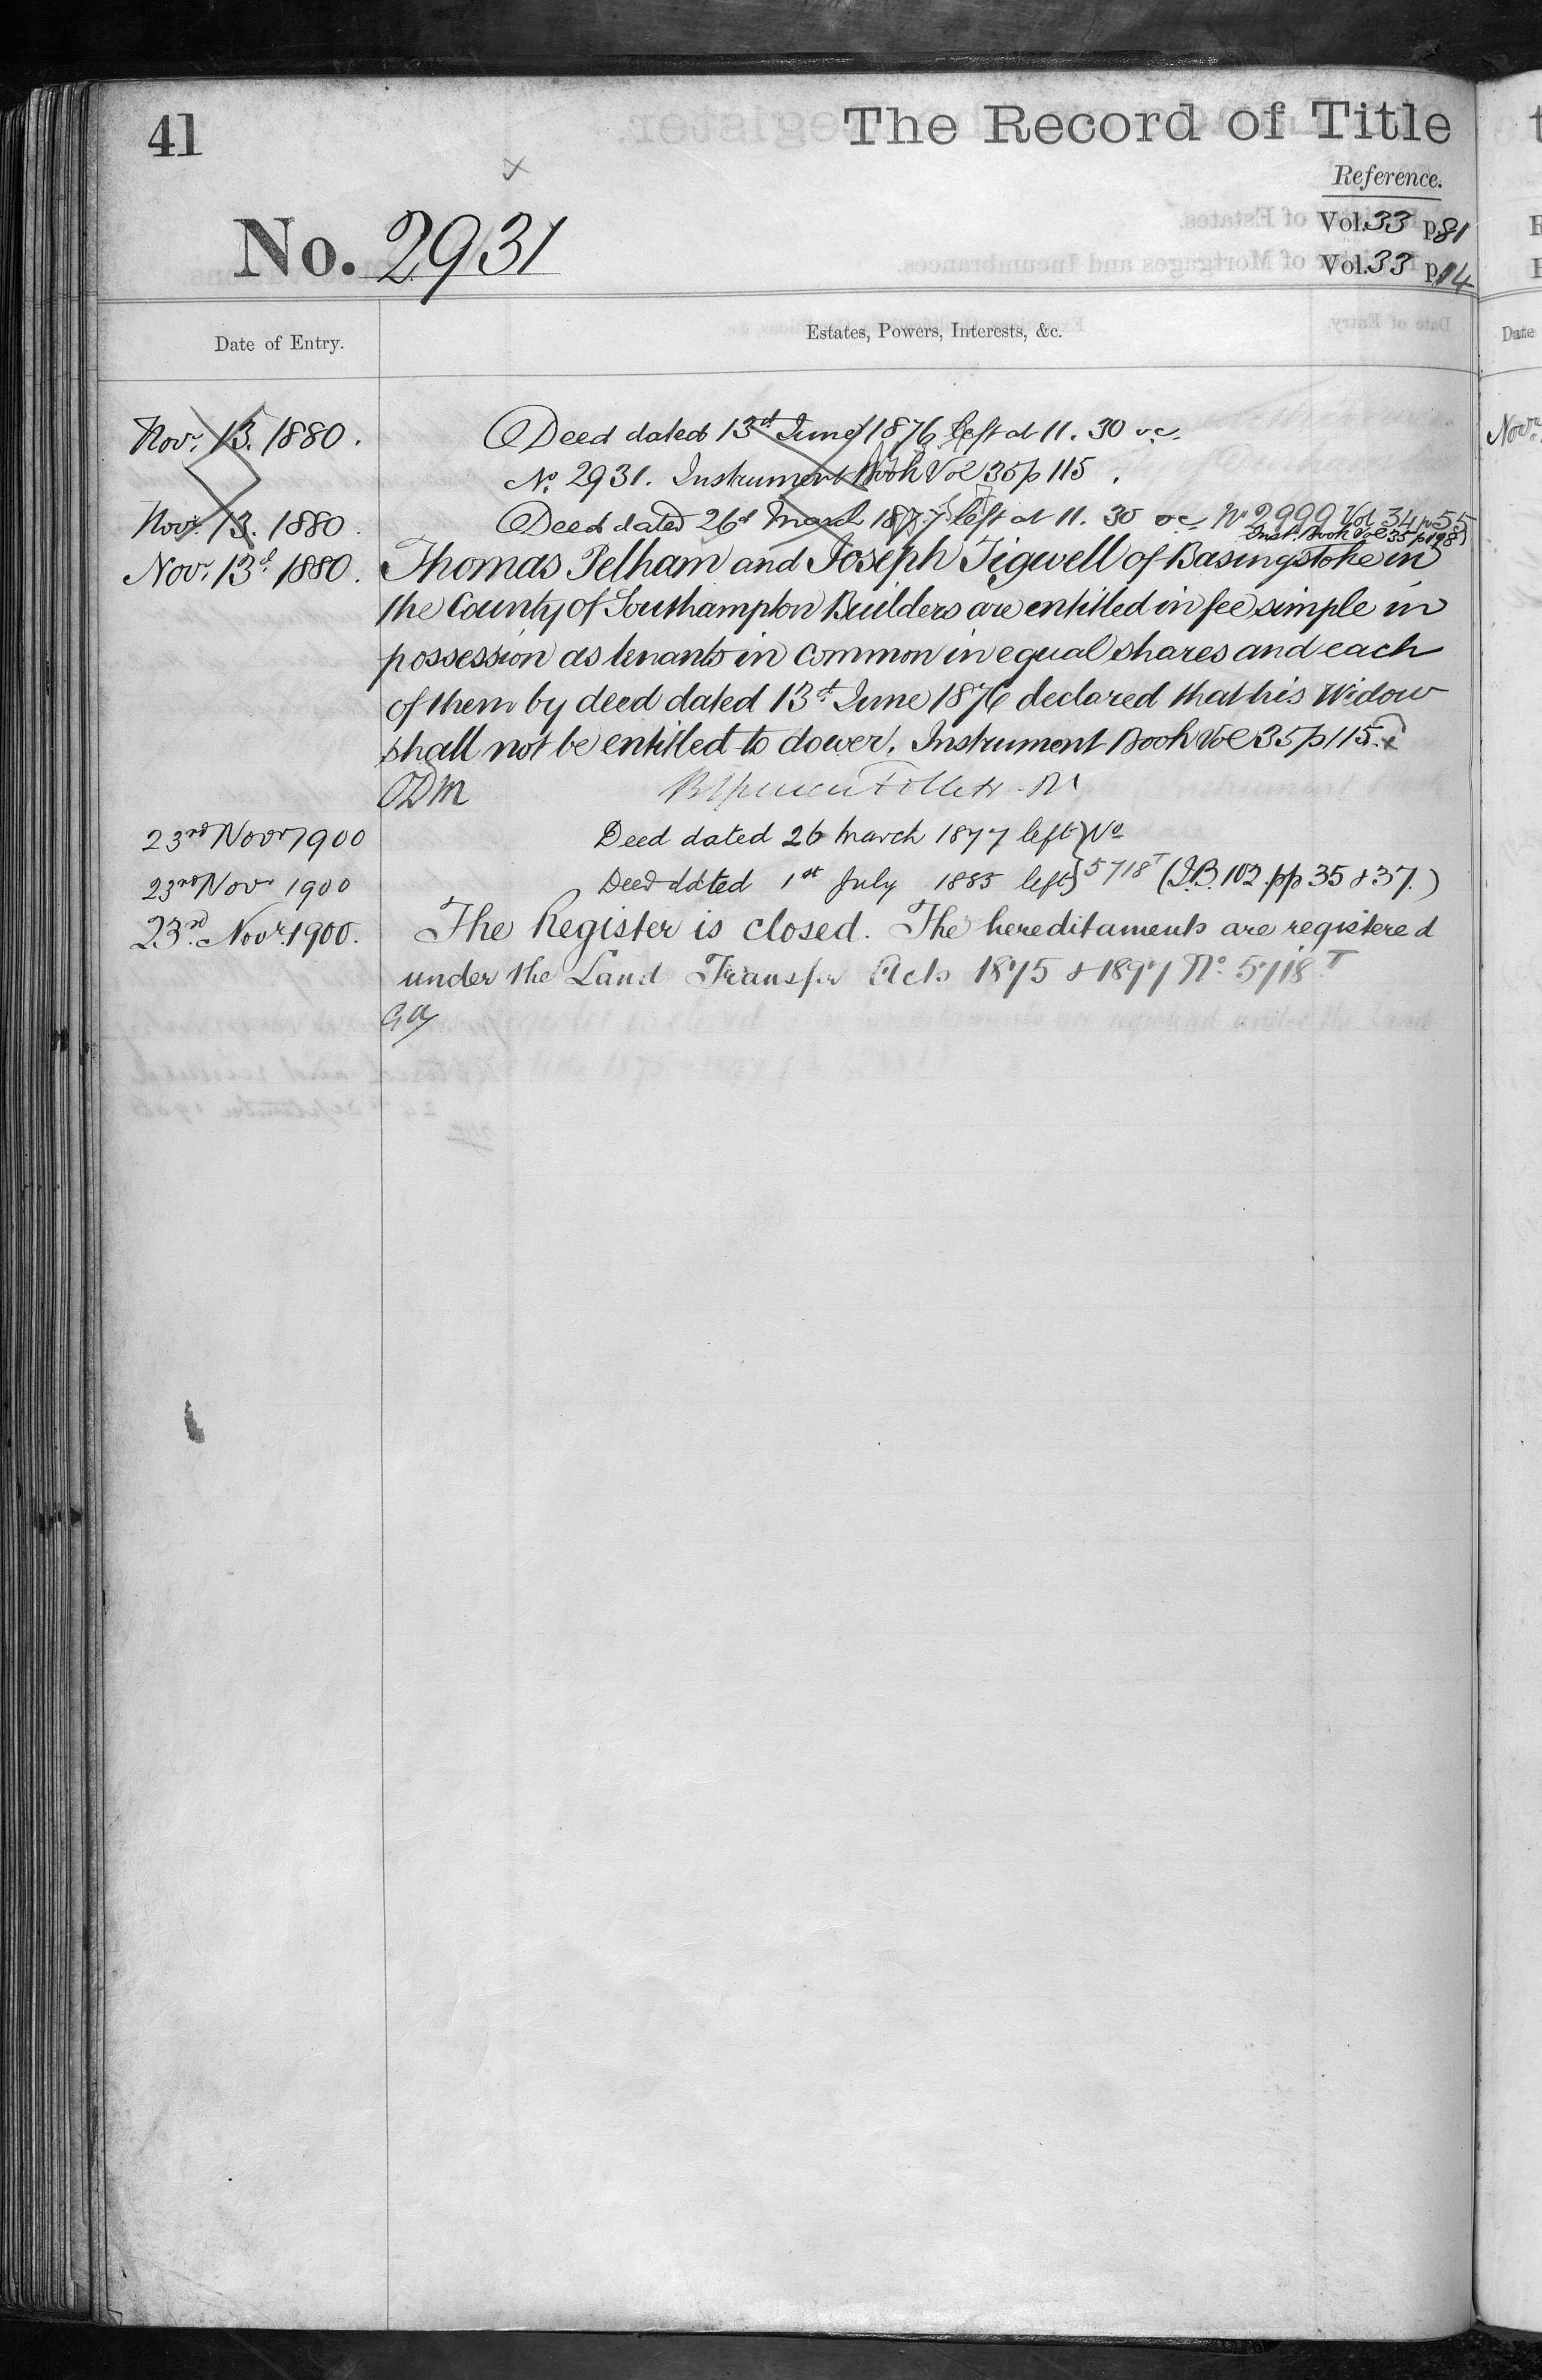 41
The Record of Title
Reference.
No. 2931
Vol. 33 p. 81
Vol. 33 p. 14
Date of Entry.
Estates, Powers, Interests, &c.
Novr. 13. 1880. Deed dated 13th June 1876 left at 11. 30 oc.
No. 2931. Instrument Book Vol 35 p 115.
Novr. 13. 1880. Deed dated 26th March 1877 left at 11. 30 oc No 2999 Vol 34 p 55
Inst. Book Vol 35 p 198
Novr. 13th 1880. Thomas Pelham and Joseph Tigwell of Basingstoke in
the County of Southampton Builders are entitled in fee simple in
possession as tenants in common in equal shares and each
of them by deed dated 13th June 1876 declared that his Widow
shall not be entitled to dower. Instrument Book Vol 35 p 115.
ODM
23rd Novr 1900 Deed dated 26 March 1877 left } No
23rd Novr 1900 Deed dated 1st July 1885 left } 5718T (I.B. 102. pp 35 & 37.)
23rd Novr. 1900. The Register is closed. The hereditaments are registered
under the Land Transfer Acts 1875 & 1897 No. 5718T